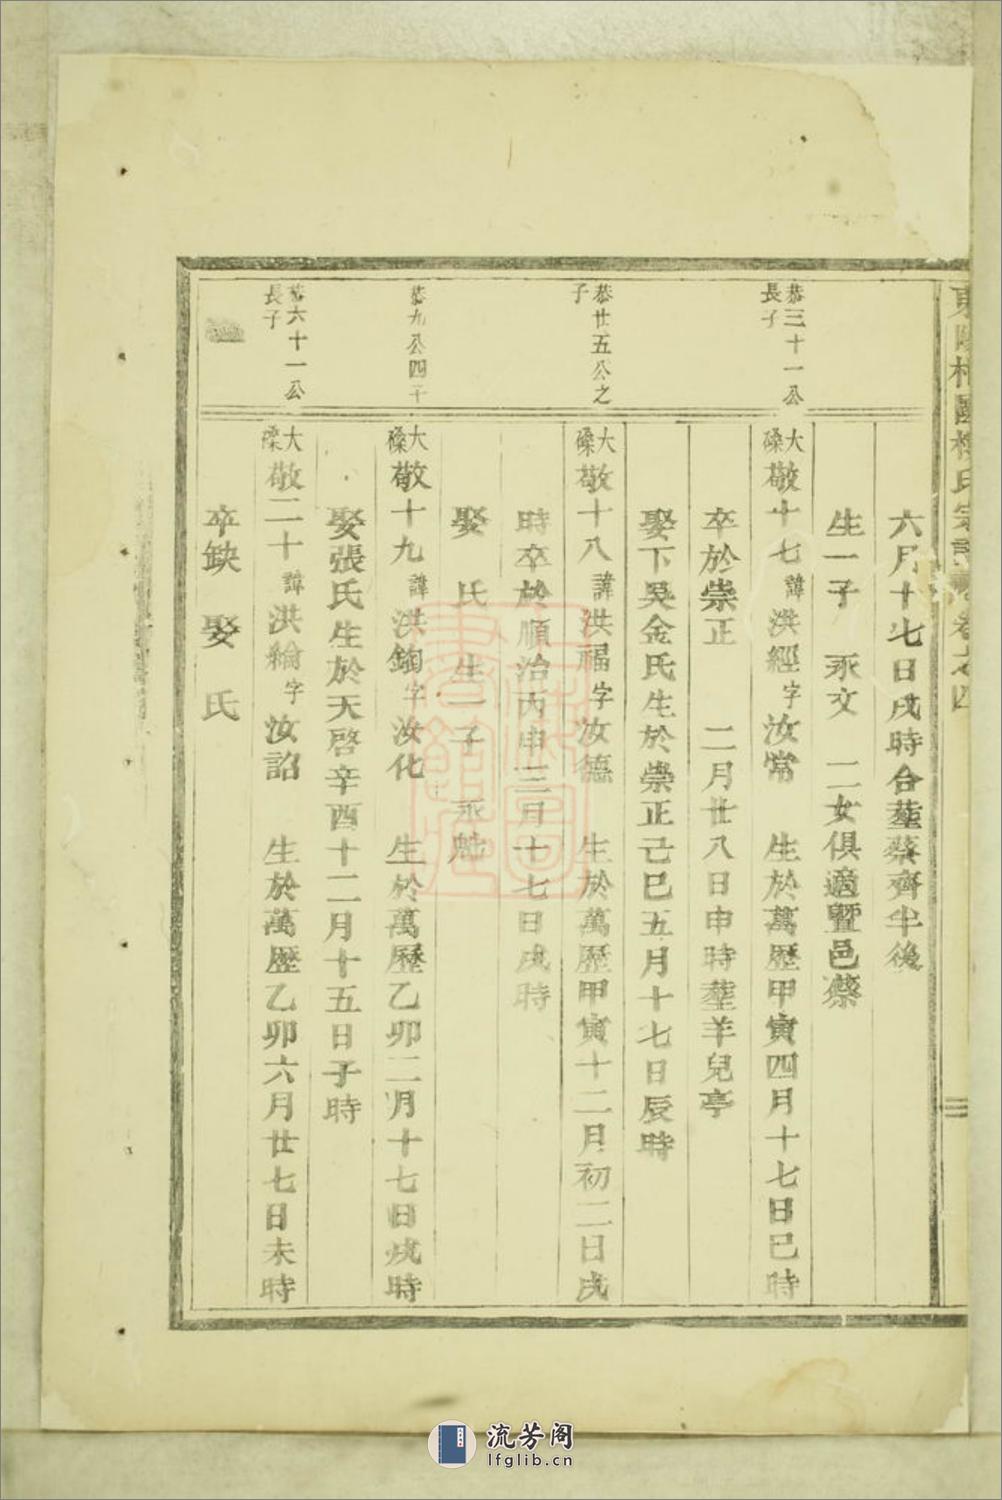 六月十七日戌時合塟蔡齊半後
生一子 承文 二女俱適暨邑蔡
恭三十一公
長子
大磉敬十七諱洪經字汝常 生於萬歷甲寅四月十七日巳時
卒於崇正 二月廿八日申時塟羊兒亭
娶下吳金氏生於崇正己巳五月十七日辰時
恭廿五公之
子
大磉敬十八諱洪福字汝德 生於萬歷甲寅十二月初二日戌
時卒於順治丙申三月十七日戌時
娶 氏 生一子 承
恭九公四子
大磉敬十九諱洪鋾字汝化 生於萬歷乙卯二月十七日戌時
娶張氏生於天啓辛酉十二月十五日子時
恭六十一公
長子
大磉敬二十諱洪綸字汝詔 生於萬歷乙卯六月廿七日未時
卒缺 娶 氏
流芳阁
lfglib.cn